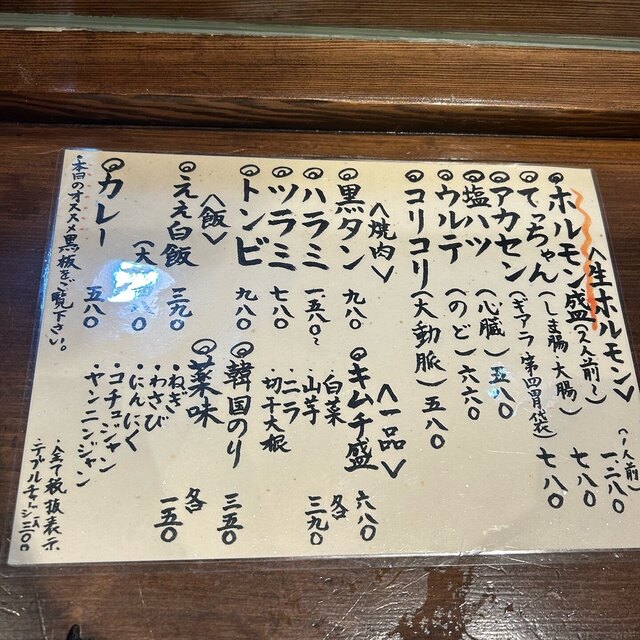 〈生ホルモン〉
ホルモン盛(2人前〜)(一人前)一二八〇
てっちゃん(しま腸・大腸)七八〇
アカセン(ギアラ第四胃袋)七八〇
塩ハツ(心臓)五八〇
ウルテ(のど)六六〇
コリコリ(大動脈)五八〇
〈焼肉〉
黒タン 九八〇
ハラミ 一五八〇〜
ツラミ 七八〇
トンビ 九八〇
〈飯〉
ええ白飯 三九〇
(大
カレー 五八〇
本日のオススメ黒板をご覧下さい。
〈一品〉
キムチ盛 六八〇
・白菜 各
・山芋 三九〇
・ニラ
・切干大根
韓国のり 三五〇
薬味 各
・ねぎ 一五〇
・わさび
・にんにく
・コチュジャン
・ヤンニンジャン
・全て税抜表示
・テーブルチャージ三〇〇